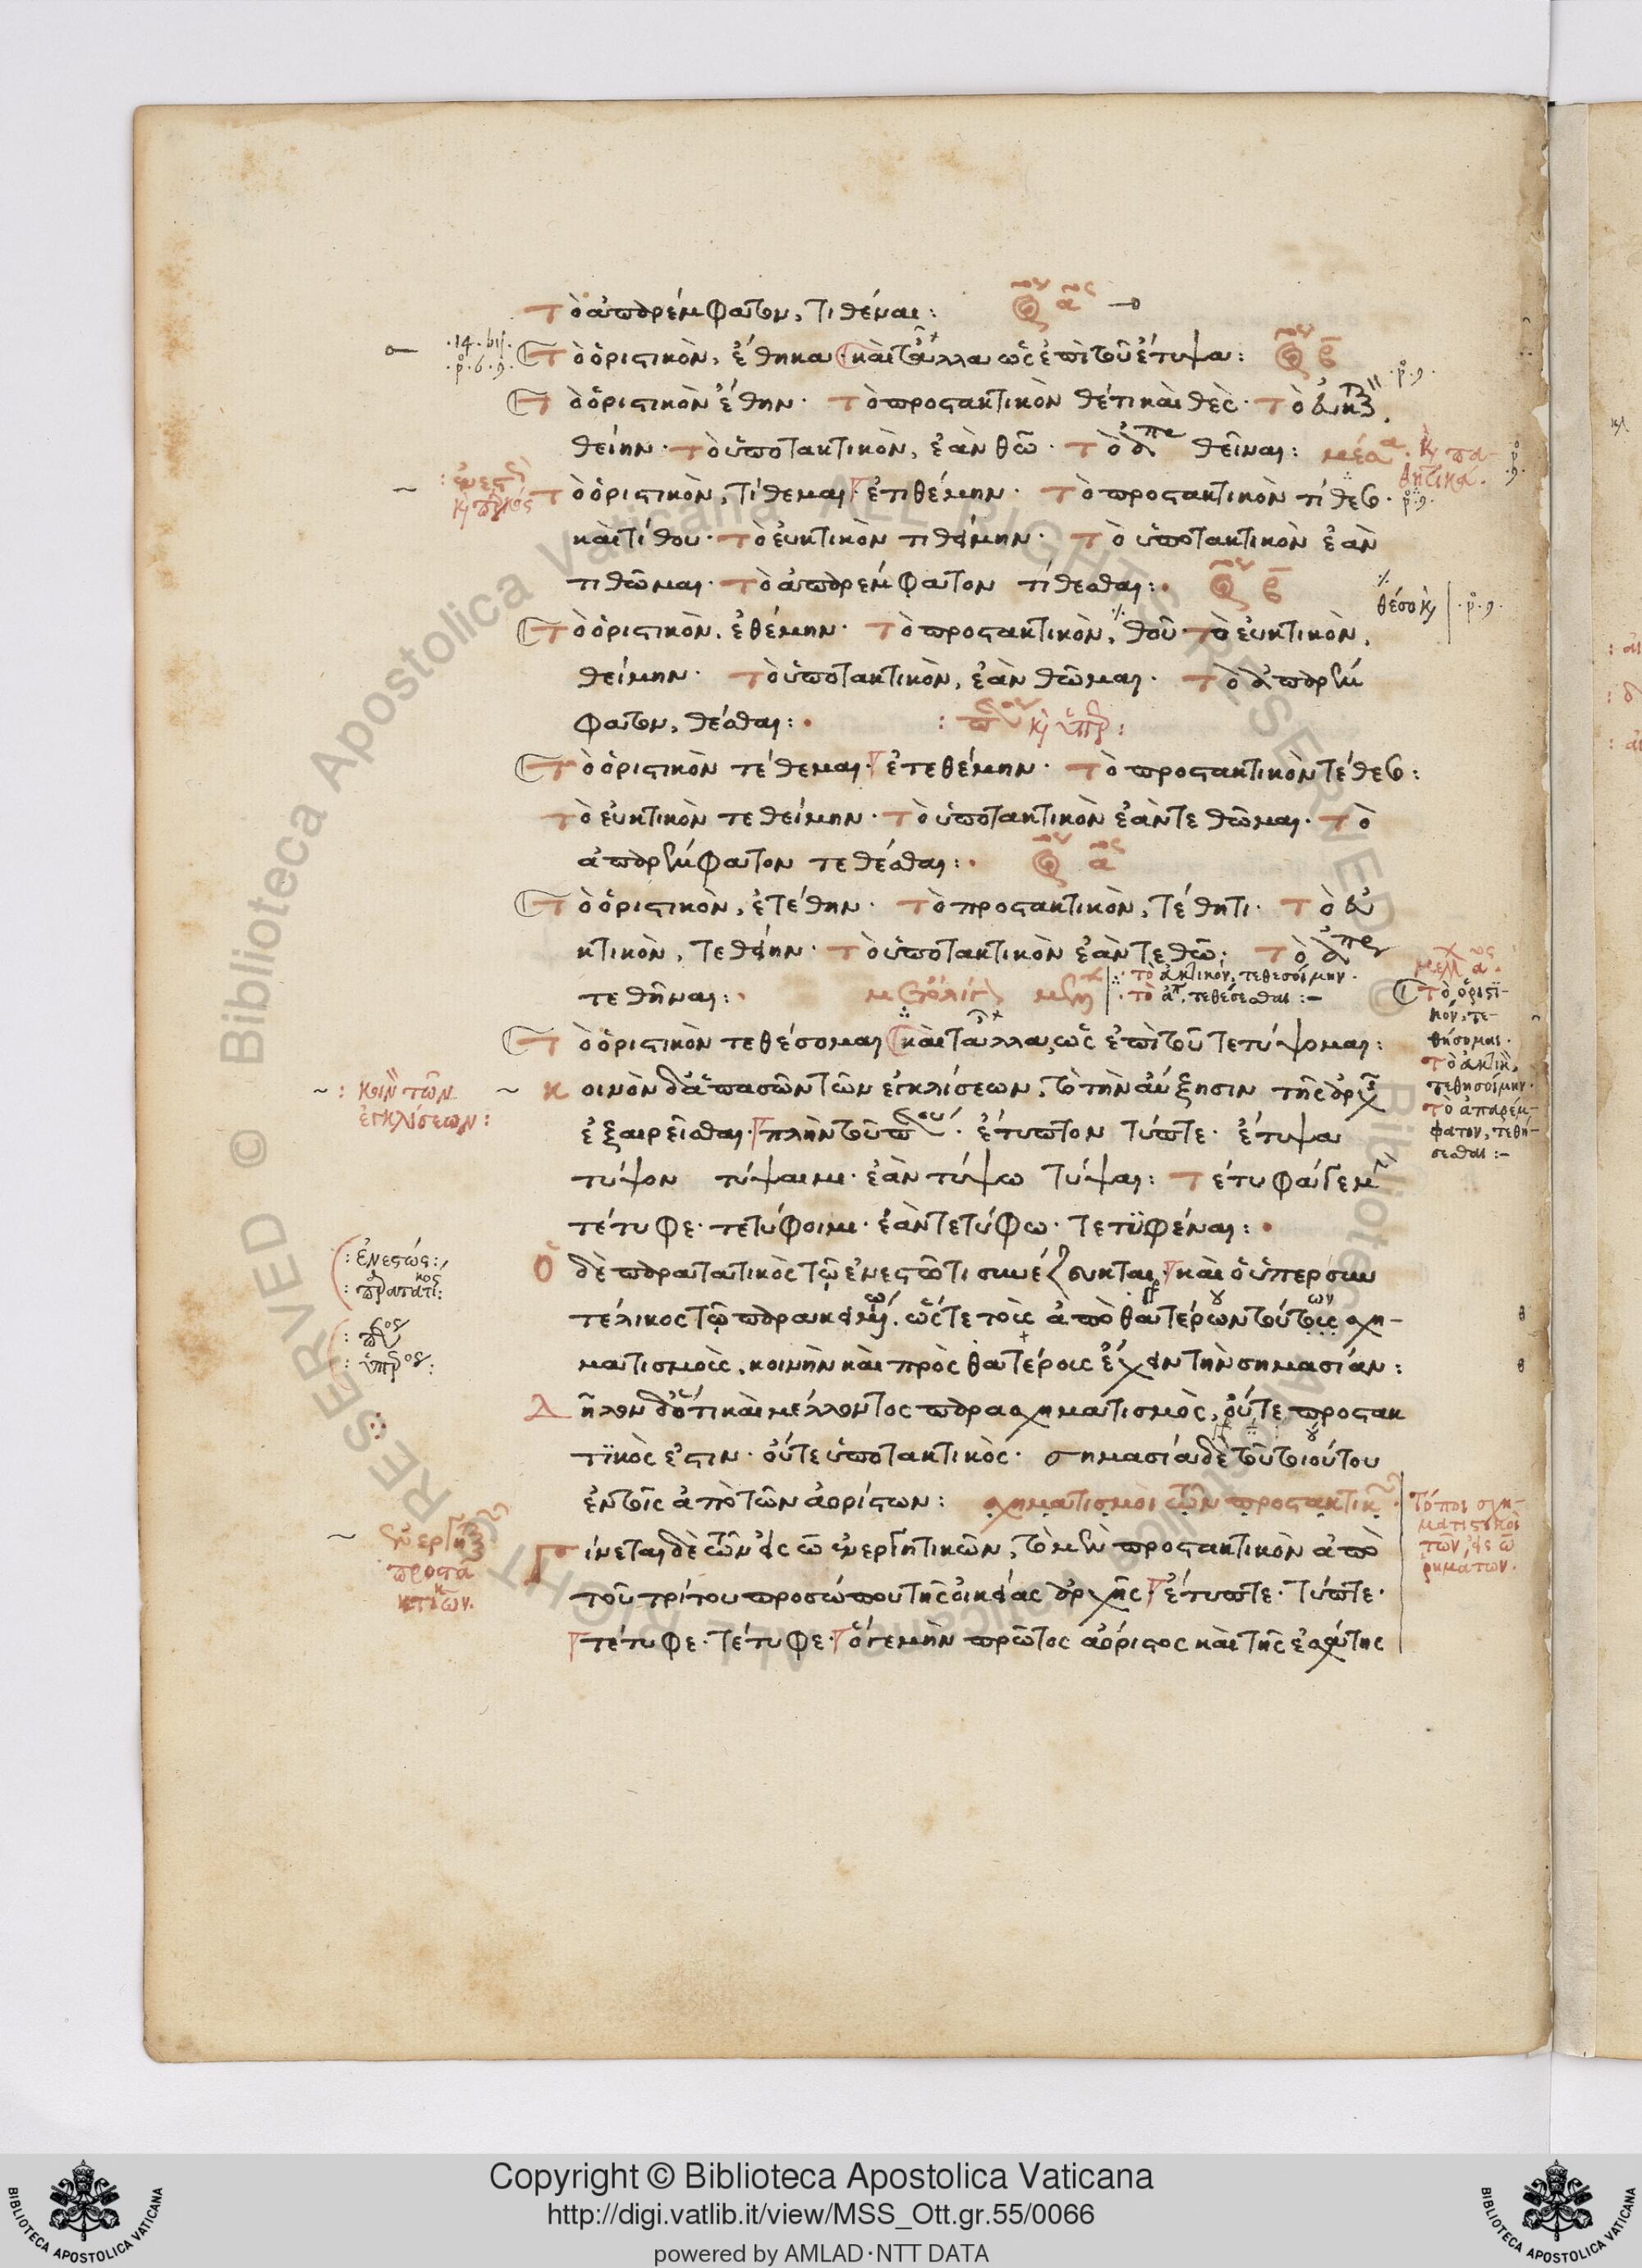 τὸ ἀπαρέμφατον, τιθέναι:
τὸ ὁριστικὸν, ἔθηκα καὶ τἆλλα ὡς ἐπὶ τοῦ ἔτυψα:
τὸ ὁριστικὸν ἔθην· τὸ προστακτικὸν θέτι καὶ θές· τὸ
θείην· τὸ ὑποτακτικὸν, ἐὰν θῶ· τὸ θεῖναι:
τὸ ὁριστικὸν, τίθεμαι ἐτιθέμην· τὸ προστακτικὸν τίθεσο·
καὶ τίθου· τὸ εὐκτικὸν τιθείμην· τὸ ὑποτακτικὸν ἐὰν
τιθῶμαι· τὸ ἀπαρέμφατον τίθεσθαι:
θέσο καὶ
τὸ ὁριστικὸν, ἐθέμην· τὸ προστακτικὸν, θοῦ· τὸ εὐκτικὸν,
θείμην· τὸ ὑποτακτικὸν, ἐὰν θῶμαι· τὸ δ' ἀπαρέμ
φατον, θέσθαι:
τὸ ὁριστικὸν τέθεμαι· ἐτεθέμην· τὸ προστακτικὸν τέθεσο:
τὸ εὐκτικὸν τεθείμην· τὸ ὑποτακτικὸν ἐὰν τεθῶμαι· τὸ
ἀπαρέμφατον τεθέσθαι:
τὸ ὁριστικὸν, ἐτέθην· τὸ προστακτικὸν, τέθητι· τὸ εὐ
κτικὸν, τεθείην· τὸ ὑποτακτικὸν ἐὰν τεθῶ· τὸ
τεθῆναι:
τὸ εὐκτικόν, τεθεσοίμην·
τὸ ἀπ. τεθέσεσθαι:–
τὸ ὁριστι-
κόν, τε-
θήσομαι·
τὸ εὐκτικ.
τεθησοίμην·
τὸ ἀπαρέμ-
φατον, τεθή-
σεσθαι:–
τὸ ὁριστικὸν τεθέσομαι καὶ τἆλλα, ὡς ἐπὶ τοῦ τετύψομαι:
: κοινὸν τῶν
ἐγκλίσεων:
κοινὸν δ' ἁπασῶν τῶν ἐγκλίσεων, τὸ τὴν αὔξησιν τῆς ἀρχῆς
ἐξαιρεῖσθαι· πλὴν τοῦ ἔτυπτον τύπτε· ἔτυψα
τύψον τύψαιμι· ἐὰν τύψω τύψαι: τέτυφά γε μὴν
τέτυφε· τετύφοιμι· ἐὰν τετύφω· τετϋφέναι:
: ἐνεστώς:
: παρατατικός:
ὁ δὲ παρατατικὸς τῷ ἐνεστῶτι συνέζευκται· καὶ ὁ ὑπερσυν
τέλικος τῷ παρακειμένῳ. ὥστε τοῖς ἀπὸ θατέρων τούτοις σχη-
ματισμοῖς, κοινὴν καὶ πρὸς θατέροις ἔχειν τὴν σημασίαν:
δῆλον δ' ὅτι καὶ μέλλοντος παρασχηματισμὸς, οὔτε προστακ
τϊκὸς ἐστιν· οὔτε ὑποτακτικὸς· σημασία δὲ τοῦ τοιούτου
ἐν τοῖς ἀπὸ τῶν ἀορίστων: σχηματισμοὶ τῶν προστακτικῶν·
τόποι σχη-
ματισμοὶ
τῶν, εἰς ω
ῥημάτων.
γίνεται δὲ τῶν εἰς ω ἐνεργητικῶν, τὸ μὲν προστακτικὸν ἀπὸ
τοῦ τρίτου προσώπου τῆς οἰκείας ἀρχῆς· ἔτυπτε· τύπτε·
τέτυφε· τέτυφε· ὅ γε μὴν πρῶτος ἀόριστος καὶ τῆς ἐσχάτης
Copyright © Biblioteca Apostolica Vaticana
http://digi.vatlib.it/view/MSS_Ott.gr.55/0066
powered by AMLAD·NTT DATA
BIBLIOTECA APOSTOLICA VATICANA
BIBLIOTECA APOSTOLICA VATICANA